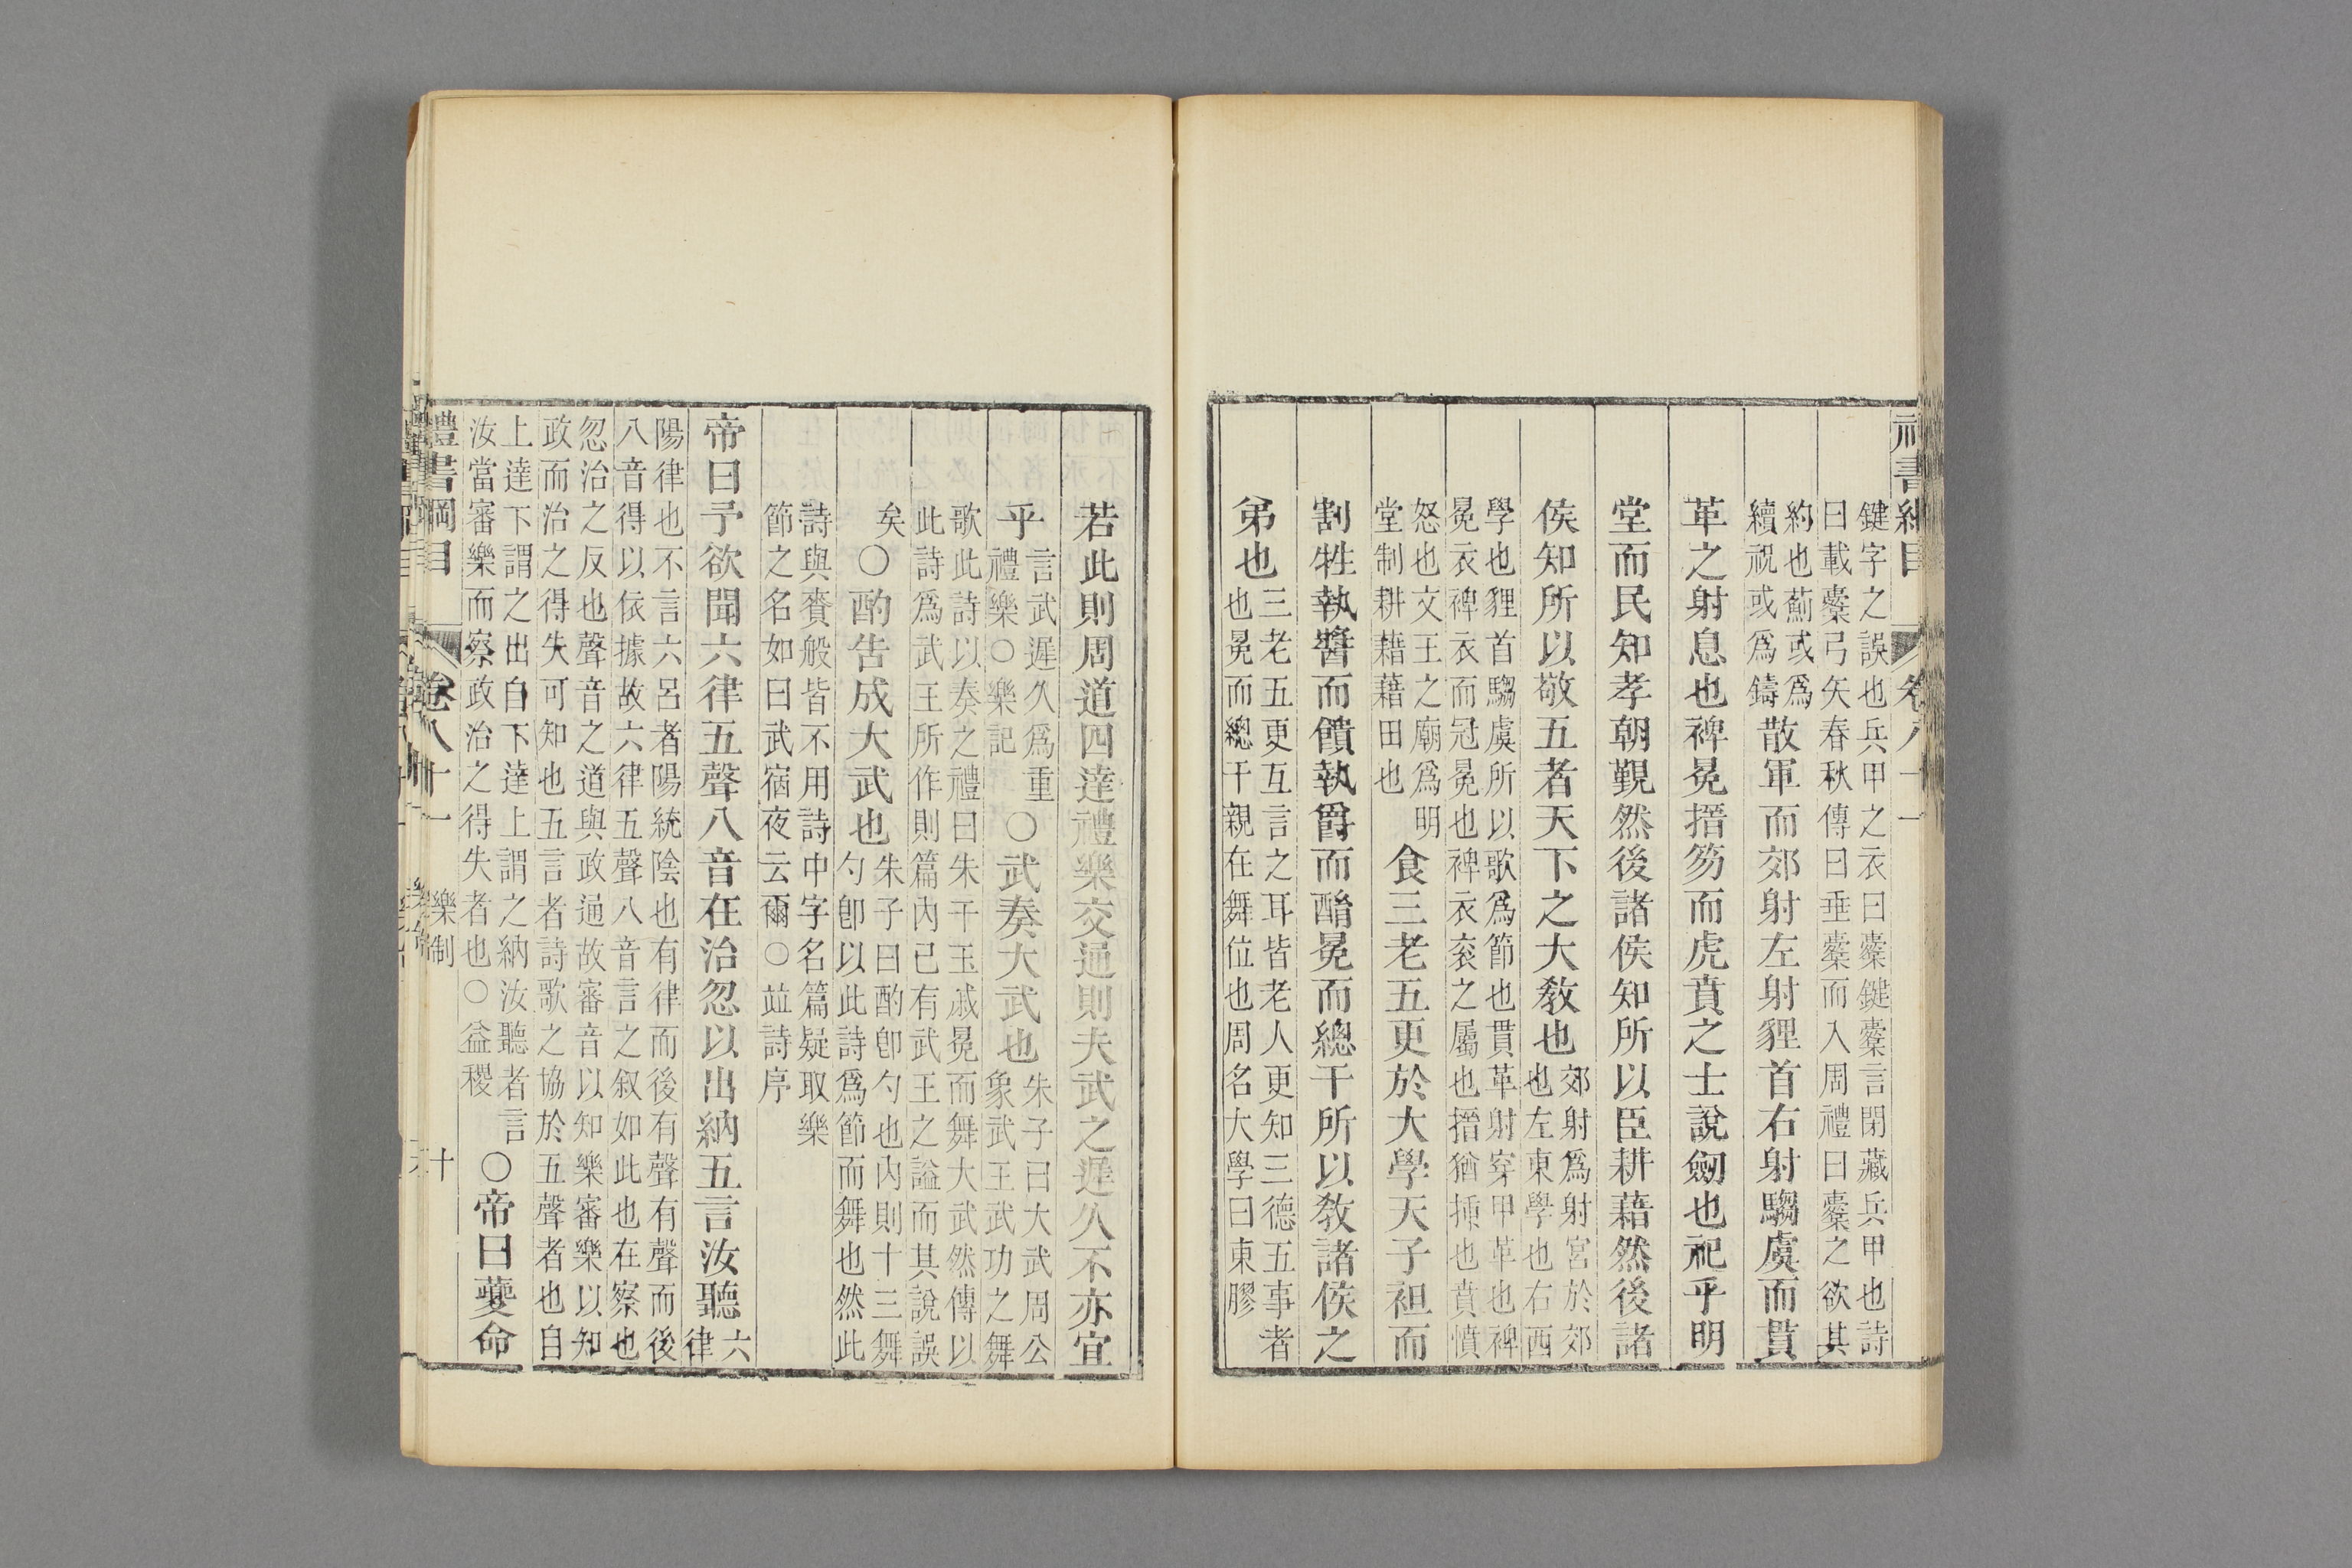 鍵字之誤也兵甲之衣曰櫜鍵櫜言閉藏兵甲也詩
曰載櫜弓矢春秋傳曰垂櫜而入周禮曰櫜之欲其
約也薊或爲
續祝或爲鑄
散軍而郊射左射貍首右射騶虞而貫
革之射息也裨冕搢笏而虎賁之士說劒也祀乎明
堂而民知孝朝覲然後諸侯知所以臣耕藉然後諸
侯知所以敬五者天下之大敎也
郊射爲射宮於郊
也左東學也右西
學也貍首騶虞所以歌爲節也貫革射穿甲革也裨
冕衣裨衣而冠冕也裨衣衮之屬也搢猶揷也賁憤
怒也文王之廟爲明
堂制耕藉藉田也
食三老五更於大學天子袒而
割牲執醬而饋執爵而酳冕而總干所以敎諸侯之
弟也
三老五更互言之耳皆老人更知三德五事者
也冕而總干親在舞位也周名大學曰東膠
若此則周道四達禮樂交通則夫武之遲久不亦宜
乎
言武遲久爲重
禮樂○樂記
○武奏大武也
朱子曰大武周公
象武王武功之舞
歌此詩以奏之禮曰朱干玉戚冕而舞大武然傳以
此詩爲武王所作則篇內已有武王之謚而其說誤
矣
○酌告成大武也
朱子曰酌卽勺也內則十三舞
勺卽以此詩爲節而舞也然此
詩與賚般皆不用詩中字名篇疑取樂
節之名如曰武宿夜云爾○竝詩序
帝曰予欲聞六律五聲八音在治忽以出納五言汝聽
六
律
陽律也不言六呂者陽統陰也有律而後有聲有聲而後
八音得以依據故六律五聲八音言之叙如此也在察也
忽治之反也聲音之道與政通故審音以知樂審樂以知
政而治之得失可知也五言者詩歌之協於五聲者也自
上達下謂之出自下達上謂之納汝聽者言
汝當審樂而察政治之得失者也○益稷
○帝曰夔命
禮書綱目
卷八十一
樂制
十